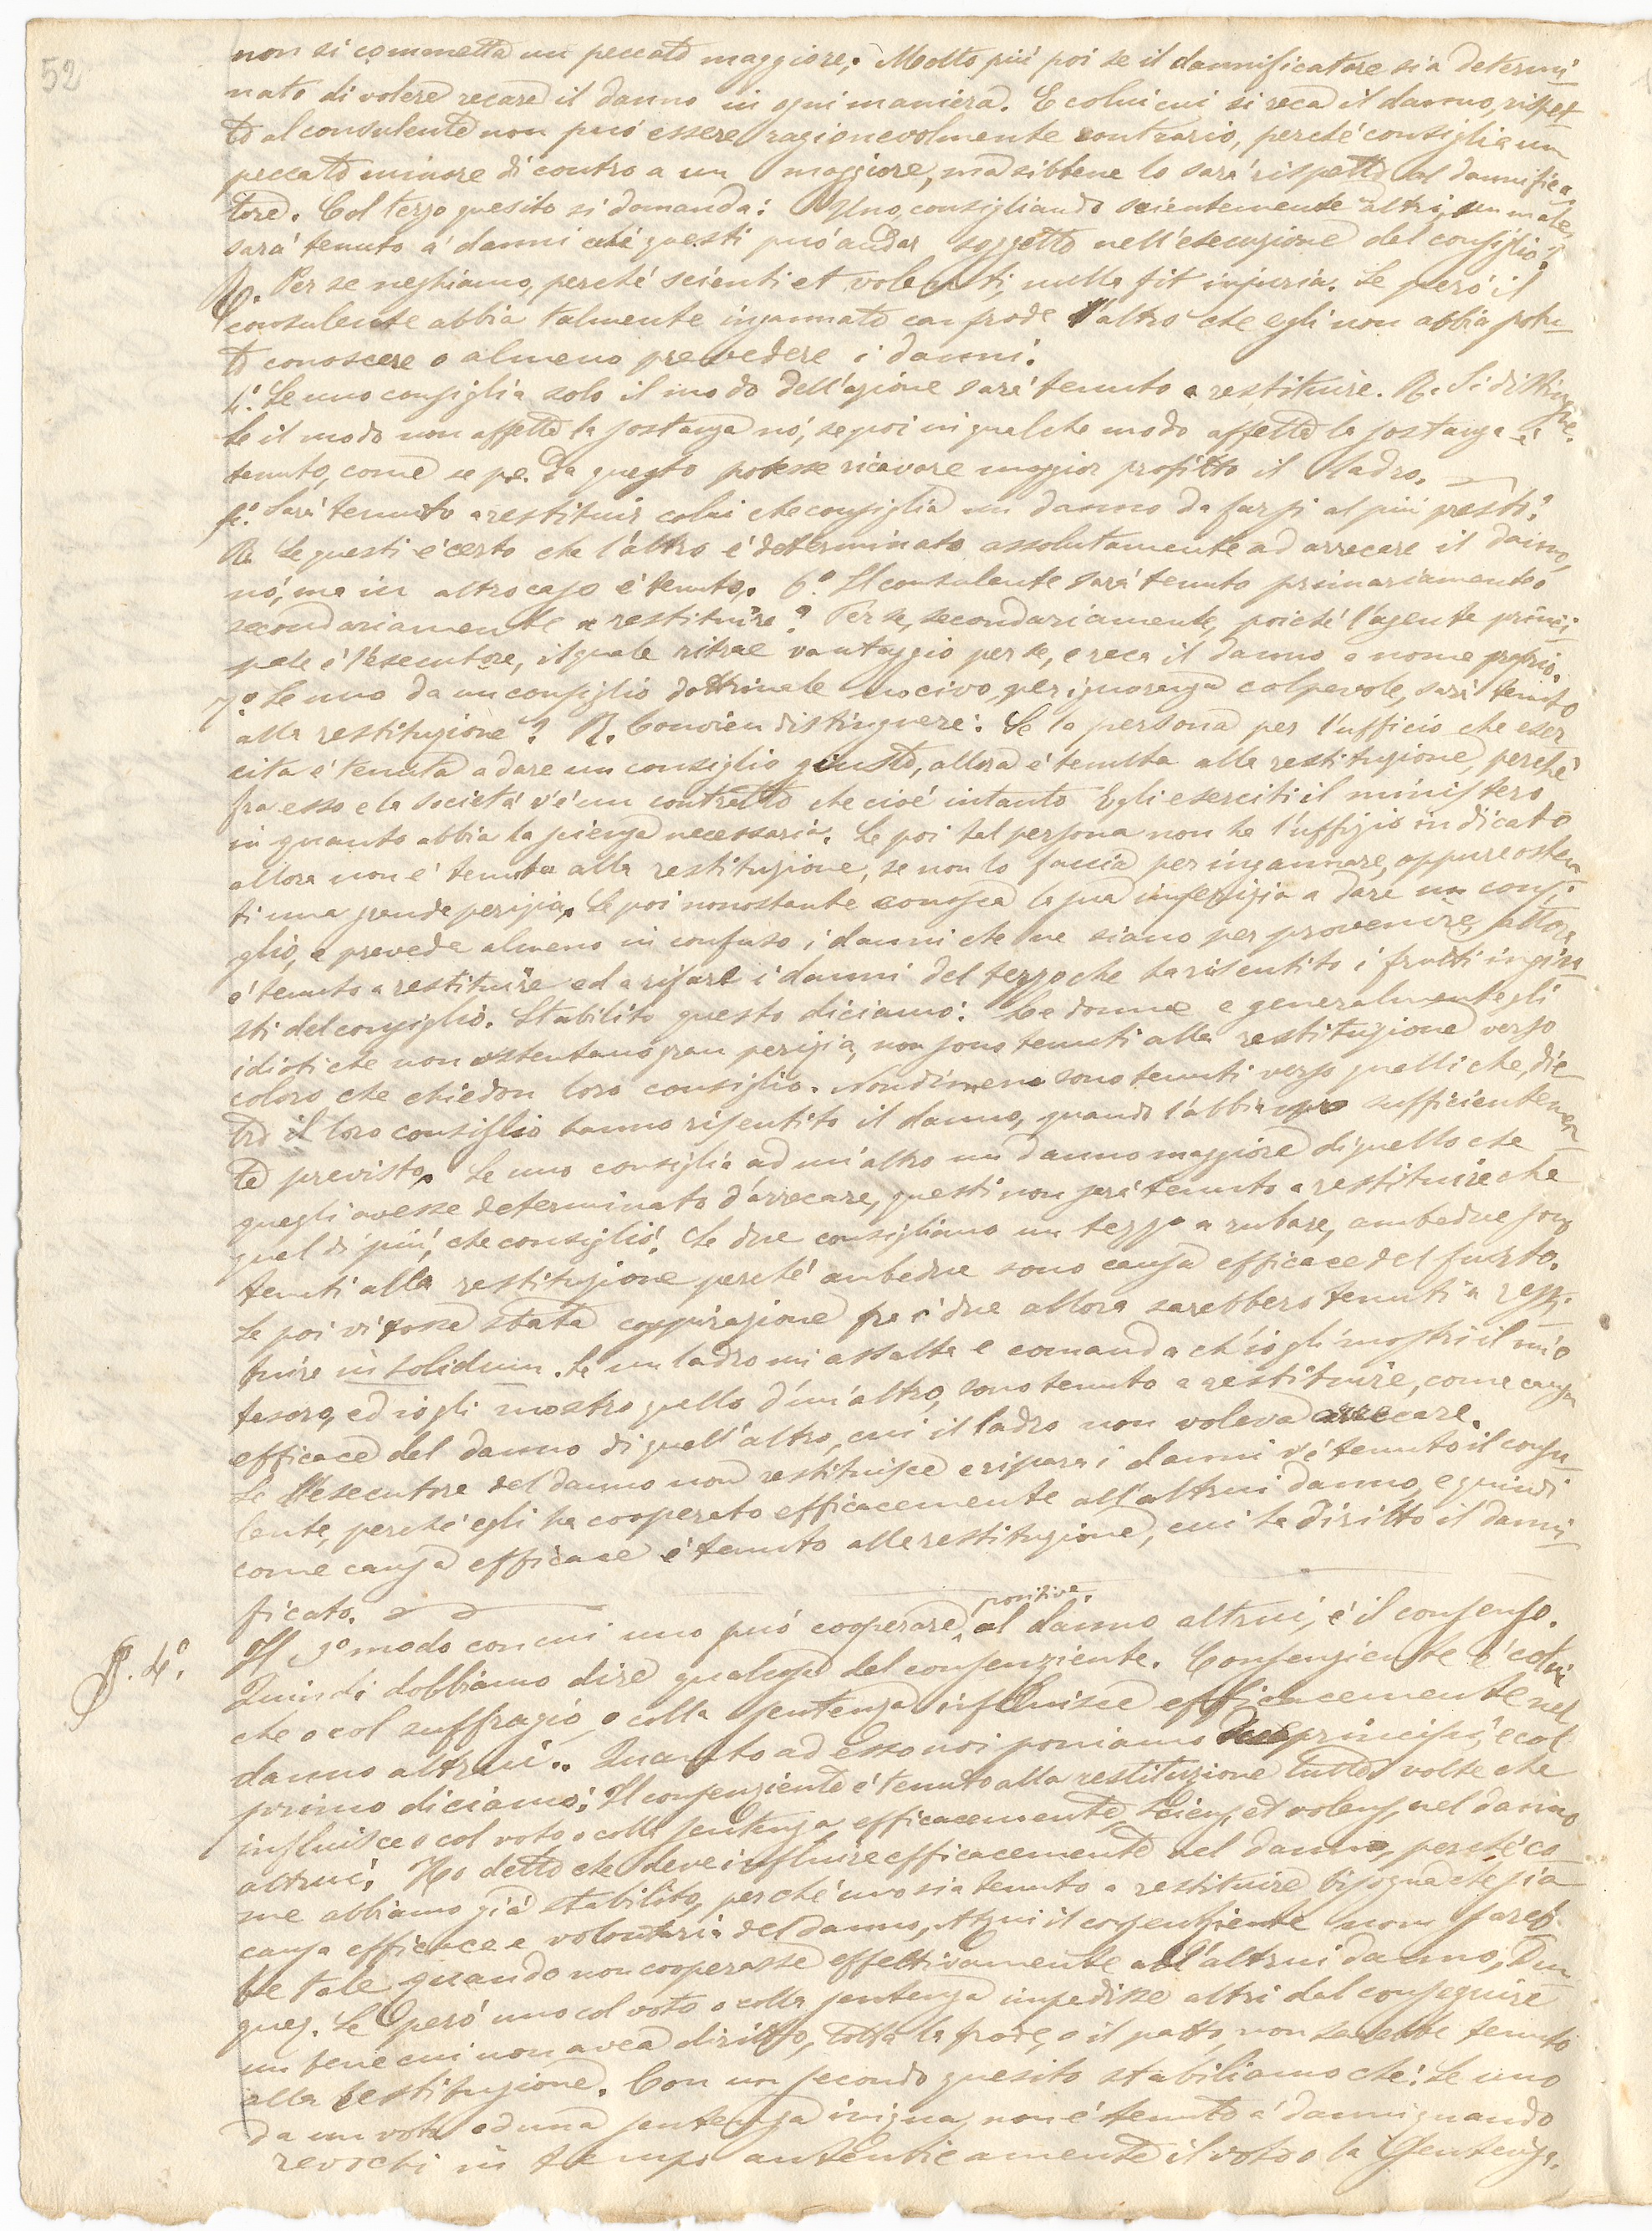 52
non si commetta un peccato maggiore; Molto più poi se il dannificatore sia determi
nato di volere recare il danno in ogni maniera. E colui cui si reca il danno, rispet
to al consulente non può essere ragionevolmente contrario, perché consiglia un
peccato minore di contro a un maggiore, ma sibbene lo sarà rispetto al dannifica
tore. Col terzo quesito si domanda: Uno, consigliando scientemente altri, un male,
sarà tenuto a' danni cui questi può andar soggetto nell'esecuzione del consiglio?
R. Per se neghiamo, perché scienti et volenti, nulla fit injuria. Se però il
consulente abbia talmente ingannato con frode l'altro che egli non abbia potu
to conoscere o almeno prevedere i danni.
4.° Se uno consiglia solo il modo dell'azione sarà tenuto a restituire. R. Si distingue.
Se il modo non affetta la sostanza nó, se poi in qualche modo affetta la sostanza é
tenuto, come se p.e. da questo potesse ricavare maggior profitto il ladro.
5.° Sarà tenuto a restituir colui che consiglia un danno da farsi al più presto?
R. Se questi é certo che l'altro é determinato assolutamente ad arrecare il danno,
nó, ma in altro caso é tenuto. 6.° Il consulente sarà tenuto primariamente o
secondariamente a restituire? Per se, secondariamente, poiché l'agente princi
pale é l'esecutore, il quale ritrae vantaggio per se, e reca il danno a nome proprio.
7.° Se uno da un consiglio dottrinale nocivo, per ignoranza colpevole, sarà tenuto
alla restituzione? R. Convien distinguere: Se la persona per l'ufficio che eser
cita é tenuta a dare un consiglio giusto, allora é tenuta alla restituzione, perché
fra esso e la società v'é un contratto che cioé intanto Egli eserciti il ministero
in quanto abbia la scienza necessaria. Se poi tal persona non ha l'uffizio indicato
allora non é tenuta alla restituzione, se non lo faccia per ingannare, oppure osten
ti una grande perizia. Se poi nonostante conosca la sua imperizia a dare un consi
glio, e prevede almeno in confuso i danni che ne siano per provenire, allora
é tenuto a restituire ed a rifare i danni del terzo che ha risentito i frutti ingiu
sti del consiglio. Stabilito questo diciamo: Le donne e generalmente gli
idioti che non ostentano gran perizia, non sono tenuti alla restituzione verso
coloro che chiedon loro consiglio. Nondimeno sono tenuti verso quelli che, die
tro il loro consiglio hanno risentito il danno, quando l'abbiano sufficientemen
te previsto. Se uno consiglia ad un'altro un danno maggiore di quello che
quegli avesse determinato d'arrecare, questi non sarà tenuto a restituire che
quel di più, che consigliò. Se due consigliano un terzo a rubare, ambedue sono
tenuti alla restituzione perché ambedue sono causa efficace del furto.
Se poi vi fosse stata conspirazione fra i due allora sarebbero tenuti a resti
tuire in solidum. Se un ladro mi assalta e comanda ch'io gli mostri il mio
tesoro, ed io gli mostro quello d'un'altro, sono tenuto a restituire, come causa
efficace del danno di quell'altro, cui il ladro non voleva arrecare.
Se l'esecutore del danno non restituisce e ripara i danni v'é tenuto il consu
lente, perché egli ha cooperato efficacemente all'altrui danno, e quindi
come causa efficace é tenuto alla restituzione, cui ha diritto il danni
ficato.
positive.
§. 4.° Il 3° modo con cui uno può cooperare al danno altrui, é il consenso.
Quindi dobbiamo dire qualcosa del consenziente. Consenziente é colui
che o col suffragio, o colla sentenza influisce efficacemente nel
danno altrui.. Quanto ad esso noi poniamo due principii, e col
primo diciamo: Il consenziente é tenuto alla restituzione tutte volte che
influisce o col voto o colla sentenza, efficacemente, sciens, et volens, nel danno
altrui. Ho detto che deve influire efficacemente nel danno, perché co
me abbiamo già stabilito, perché uno sia tenuto a restituire bisogna che sia
causa efficace e volontaria del danno, Atqui il consenziente non sareb
be tale quando non cooperasse effettivamente all'altrui danno, Dun
que. Se però uno col voto o colla sentenza impedisse altri dal conseguire
un bene cui non avea diritto, tolta la frode, o il patto, non sarebbe tenuto
alla restituzione. Con un secondo quesito stabiliamo che: Se uno
da un voto od una sentenza iniqua, non é tenuto a' danni quando
revochi in tempo autenticamente il voto o la Sentenza.